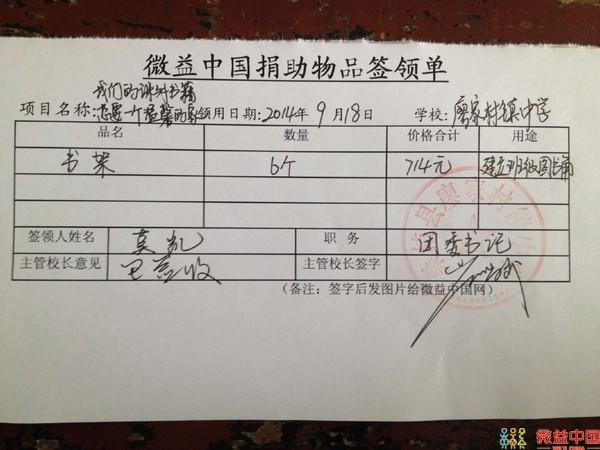 微益中国捐助物品签领单
我们的课外书籍
项目名称:也要一个温馨的家 领用日期:2014年9月18日 学校:廖家村镇中学
品名 数量 价格合计 用途
书架 6个 714元 建立班级图书角
签领人姓名 莫凯 职务 团委书记
主管校长意见 已签收 主管校长签字
(备注:签字后发图片给微益中国网)
县廖家村镇
微益中国